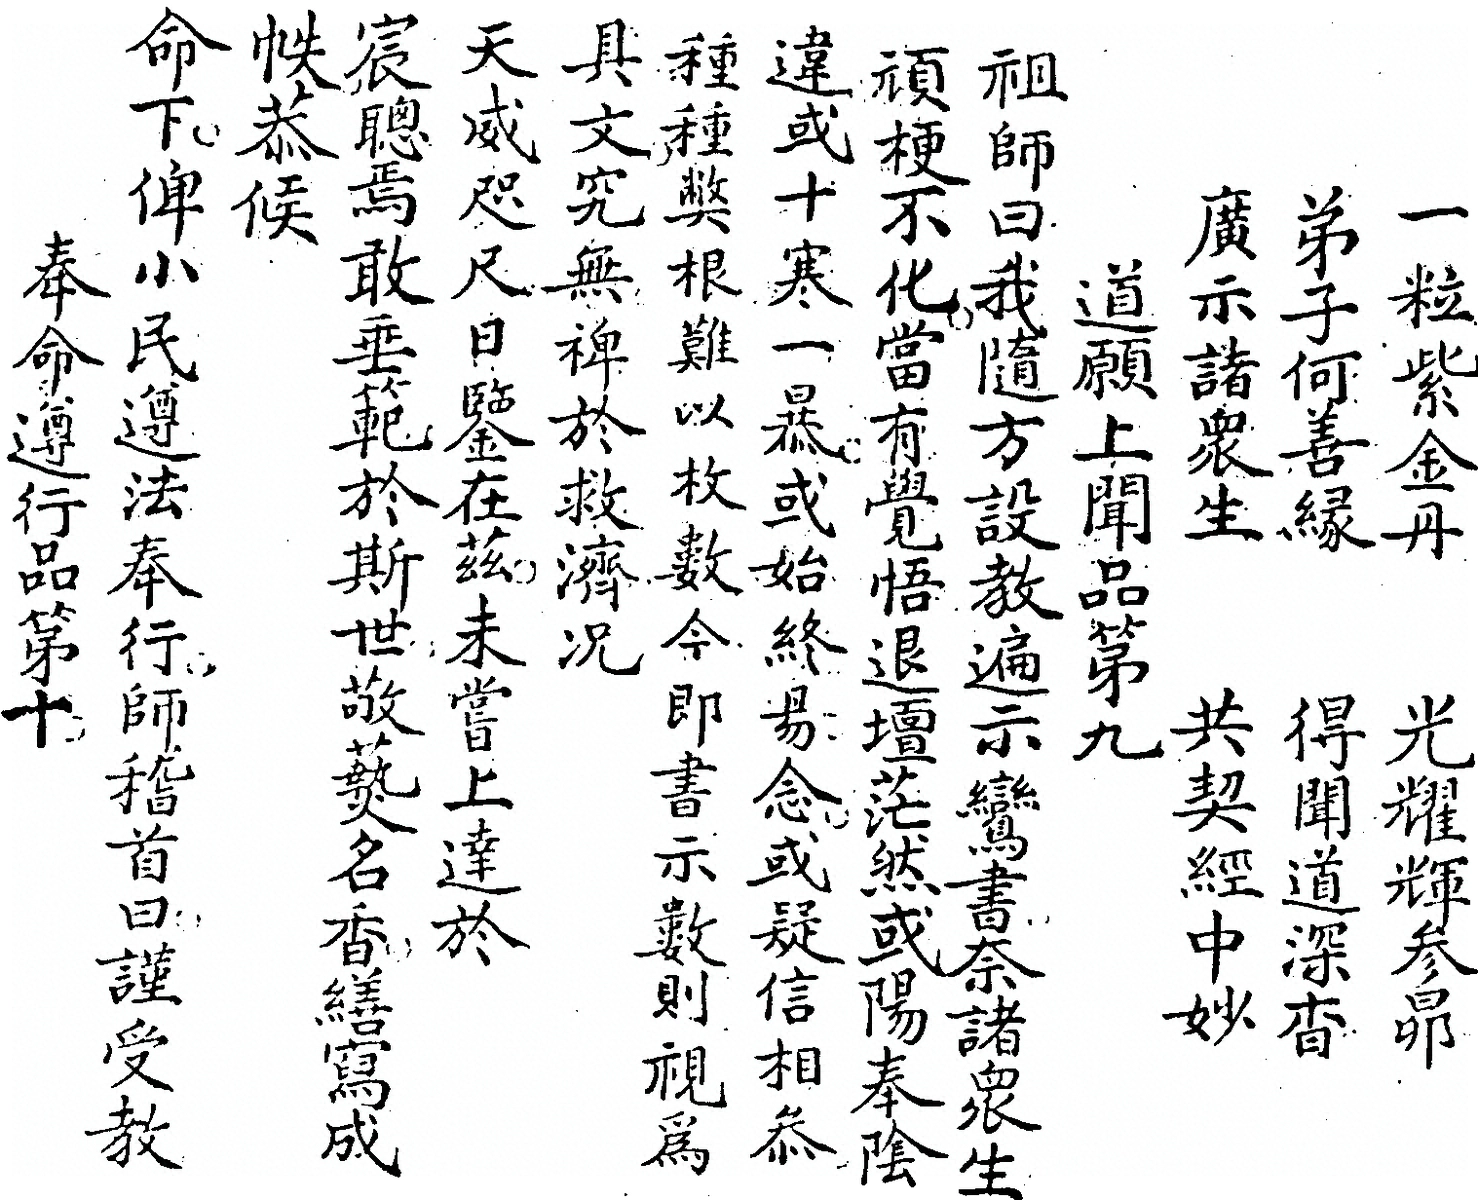 一粒紫金丹　光耀輝参昴
弟子何善縁　得聞道深杳
廣示諸衆生　共契經中妙
道願上聞品第九
祖師曰我隨方設教遍示鸞書奈諸衆生
頑梗不化當有覺悟退壇茫然或陽奉陰
違或十寒一暴或始終易念或疑信相叅
種種獘根難以枚數今即書示數則視爲
具文究無裨於救濟况
天威咫尺日鑒在茲未嘗上達於
宸聰焉敢垂範於斯世敬爇名香繕寫成
帙恭候
命下俾小民遵法奉行師稽首曰謹受教
奉命遵行品第十